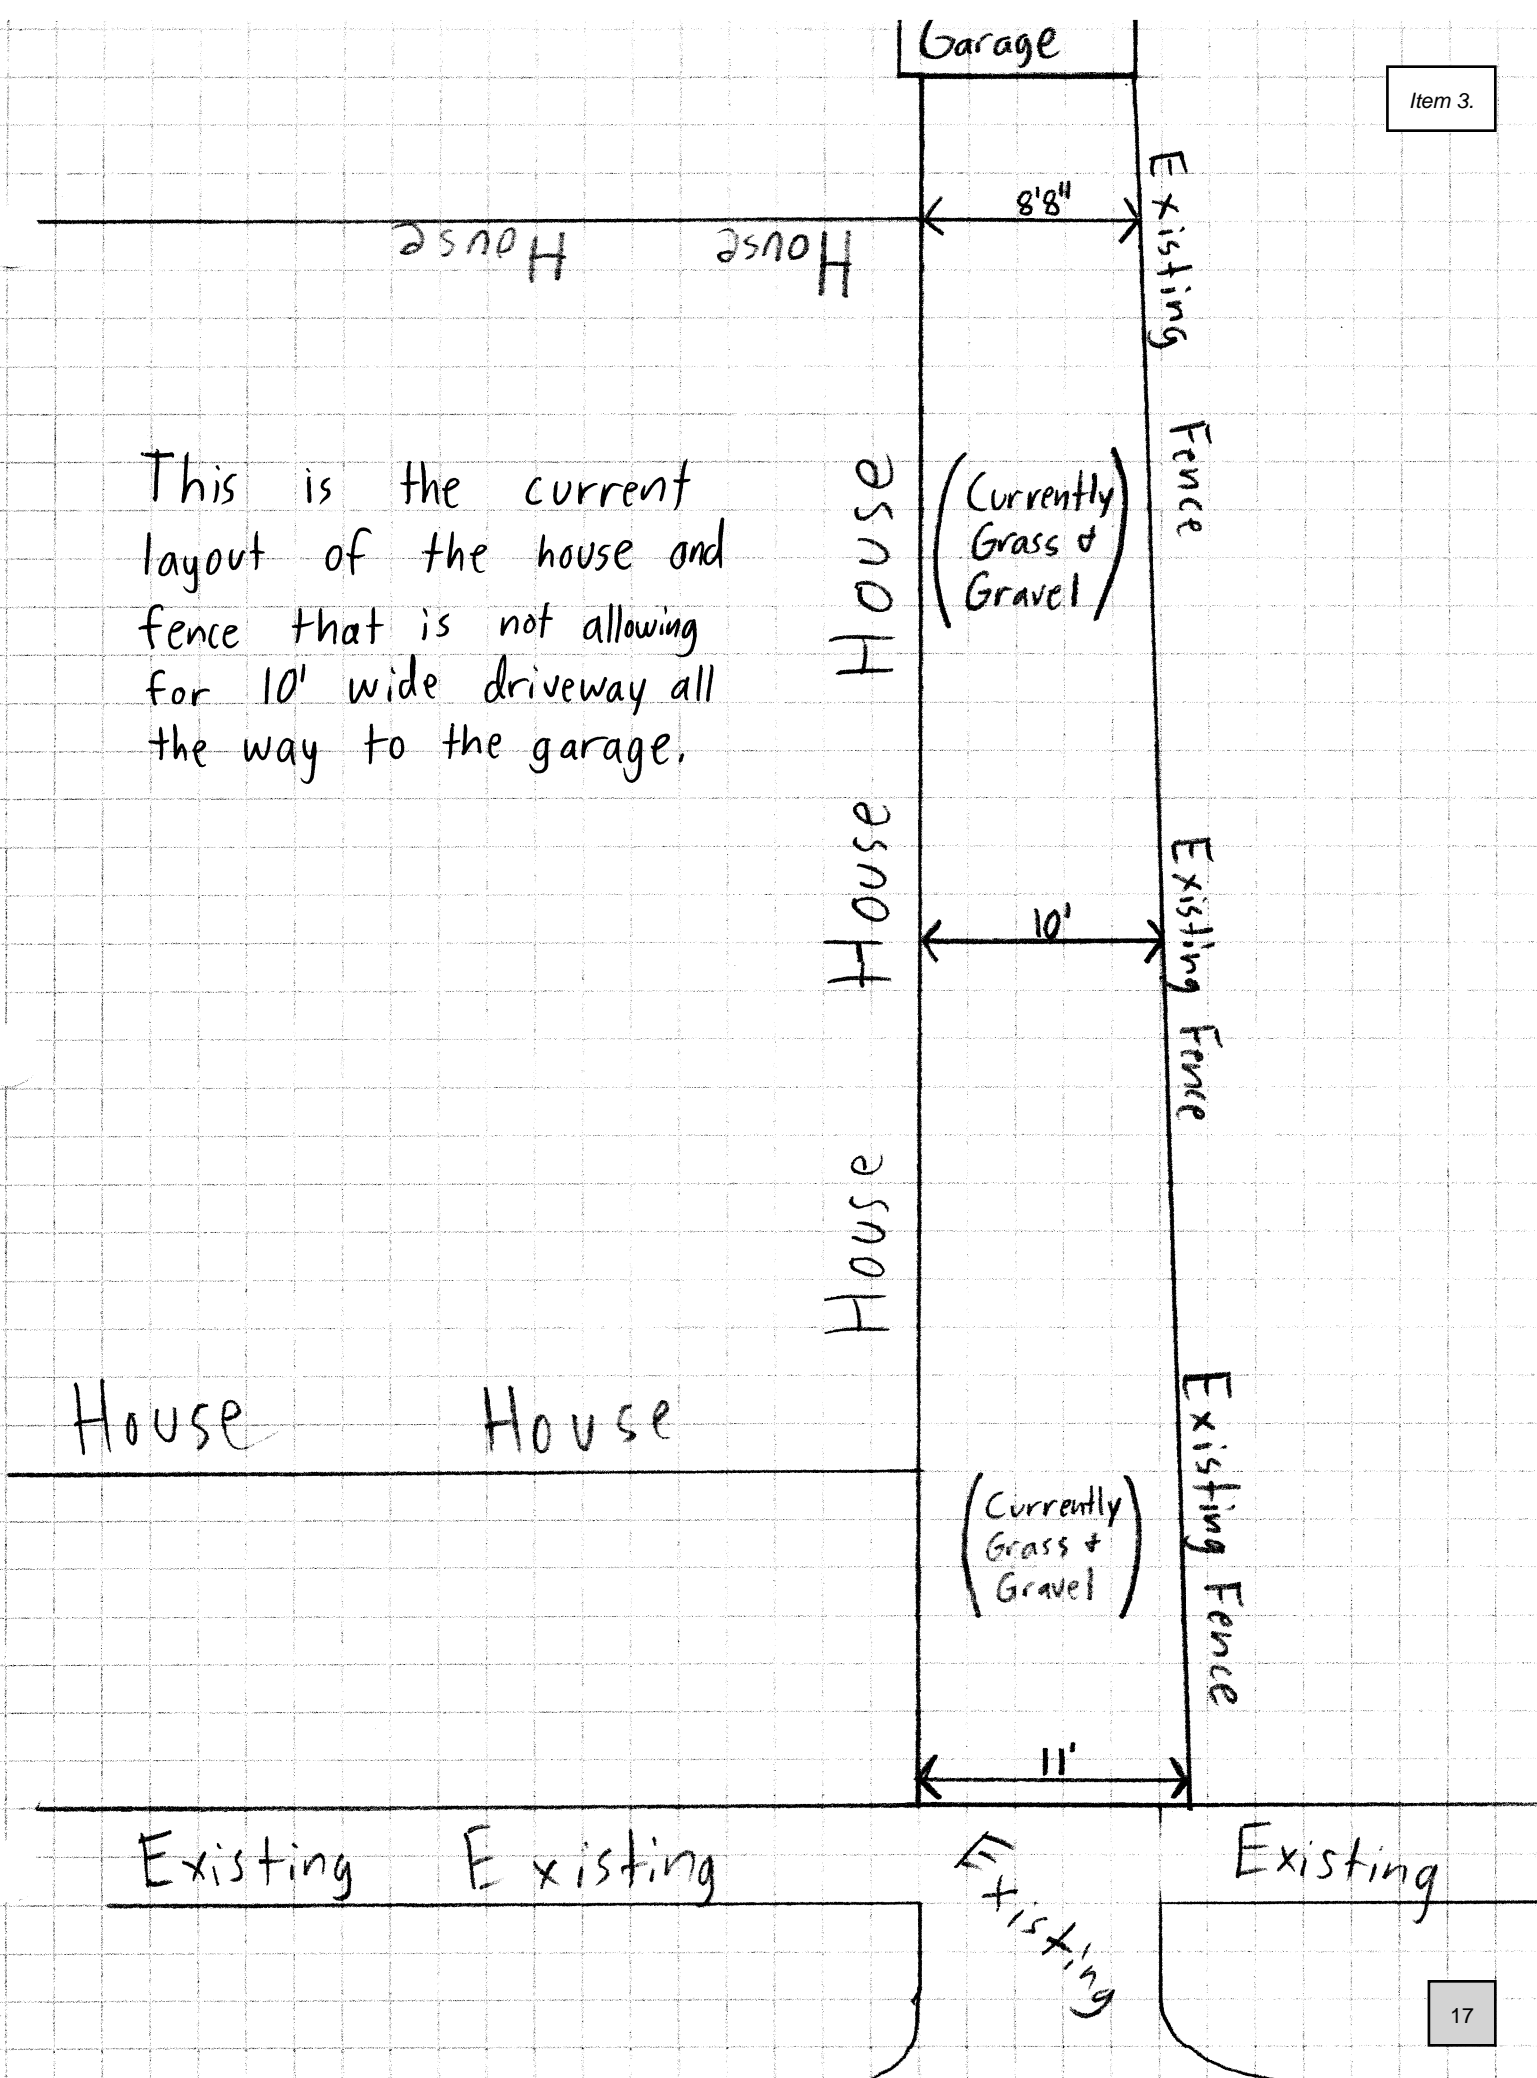 Garage
Item 3.
8'8"
Existing Fence
House House
This is the current
layout of the house and
fence that is not allowing
for 10' wide driveway all
the way to the garage.
House
(Currently
Grass &
Gravel)
House
10'
Existing Fence
House
House House
(Currently
Grass &
Gravel)
Existing Fence
11'
Existing Existing
Existing
Existing
17